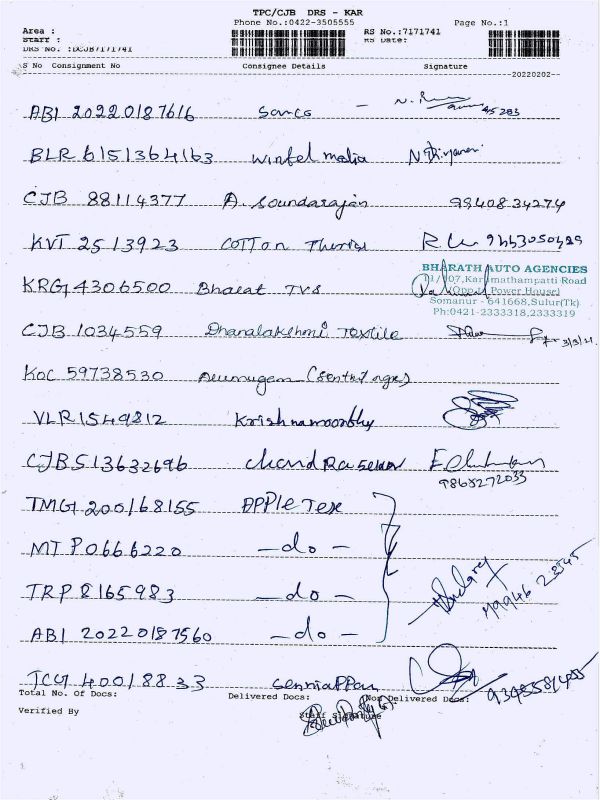 TPC/CJB DRS - KAR
Phone No.:0422-3505555 Page No.:1
Area : RS No.:7171741
Staff : RS Date:
DRS No. :DCJB7171741
S No Consignment No Consignee Details Signature
20220202
ABI 20220187616 Sanco 45283
BLR 6151364163 Wintel media
CJB 88114377 A. Soundarajan 9940834274
KVT 2513923 COTTON
KRG 4306500 Bharat TVS
BHARATH AUTO AGENCIES
11/107,Karumathampatti Road
(Opp. Power House)
Somanur - 641668,Sulur(Tk)
Ph:0421-2333318,2333319
CJB 1034559 Dhanalakshmi Textile
KOC 59738530 Arumugam
VLR 1549812 Krishnamoorthy
CJB 513632696 chandRasekar
9865272033
TMG 200168155 APPle Tex
MTP 0666220 - do -
TRP 8165983 - do -
ABI 20220187560 - do -
TCG 40018833 SenniaPPan
Total No. Of Docs: Delivered Docs: Non Delivered Docs:
Verified By Staff Signature